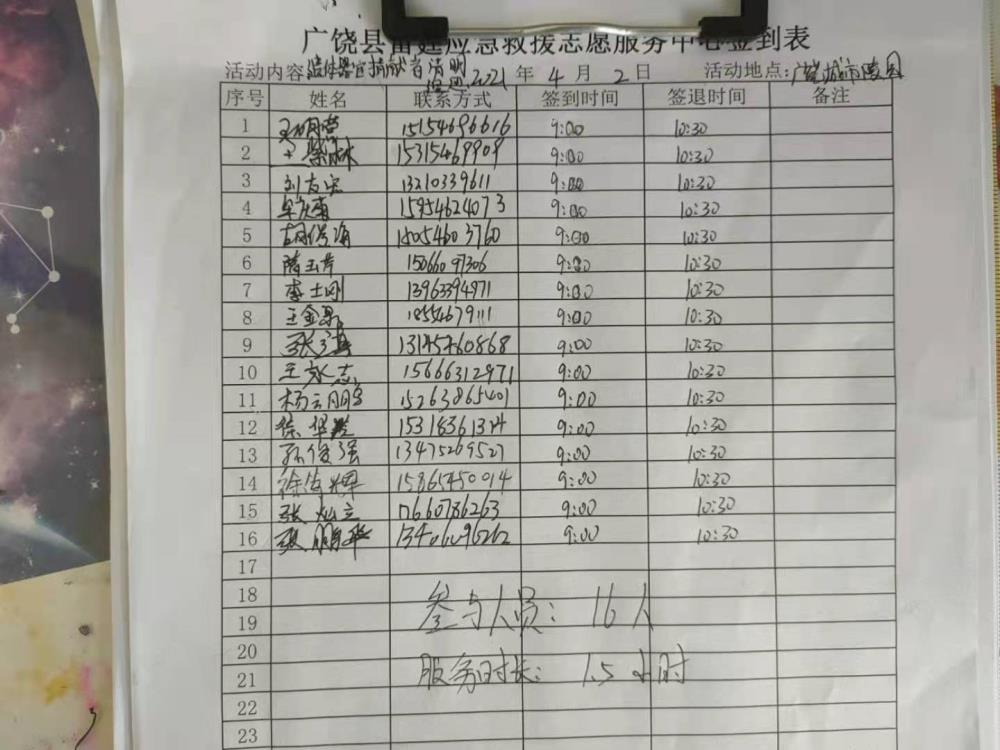 广饶县雷廷应急救援志愿服务中心签到表
活动内容 器官捐献者清明 2021年4月2日 活动地点:广饶城市陵园
序号 姓名 联系方式 签到时间 签退时间 备注
1 15154696616 9:00 10:30
2 15315469909 9:00 10:30
3 刘友宏 13210339611 9:00 10:30
4 15954624073 9:00 10:30
5 胡俊海 15054603760 9:00 10:30
6 隋玉芹 15066097306 9:00 10:30
7 李士刚 13963394971 9:00 10:30
8 王金昌 18554679111 9:00 10:30
9 9:00 10:30
10 王永志 15666312971 9:00 10:30
11 杨云鹏 15263865401 9:00 10:30
12 徐华 9:00 10:30
13 孙俊强 13475269527 9:00 10:30
14 徐海辉 15865450014 9:00 10:30
15 张灿立 17660786263 9:00 10:30
16 张鹏华 13406096262 9:00 10:30
17
18
参与人员:16人
19
20
服务时长:1.5小时
21
22
23